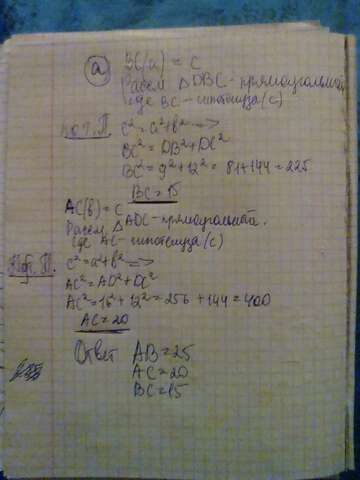 а) BC(a) = c
Рассм. △DBC - прямоугольный
где BC - гипотенуза (c)
по т. П. c² = a² + b² =>
BC² = DB² + DC²
BC² = 9² + 12² = 81 + 144 = 225
BC = 15
AC(b) = c
Рассм. △ADC - прямоугольный.
где AC - гипотенуза (c)
По т. П. c² = a² + b² =>
AC² = AD² + DC²
AC² = 16² + 12² = 256 + 144 = 400
AC = 20
Ответ AB = 25
AC = 20
BC = 15